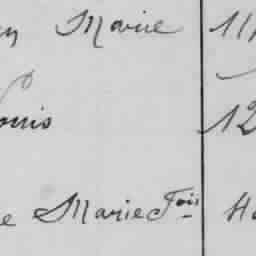 Marie 11
Louis 12
e Marie Fois